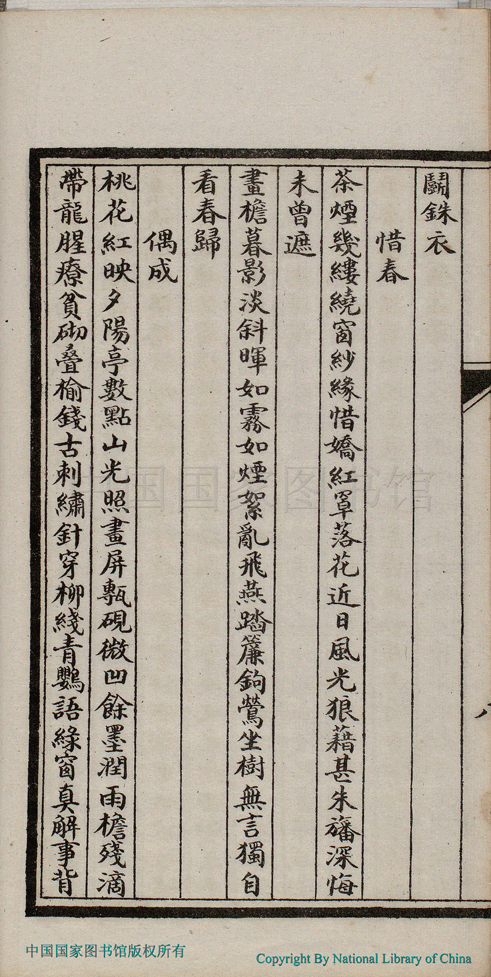 鬭銖衣
惜春
茶煙幾縷繞窗紗緣惜嬌紅罩落花近日風光狼藉甚朱旛深悔
未曾遮
畫檐暮影淡斜暉如霧如煙絮亂飛燕踏簾鉤鶯坐樹無言獨自
看春歸
偶成
桃花紅映夕陽亭數點山光照畫屏甎硯微凹餘墨潤雨檐殘滴
帶龍腥療貧砌叠榆錢古刺繡針穿柳綫青鸚語綠窗真解事背
中国国家图书馆
中国国家图书馆版权所有
Copyright By National Library of China